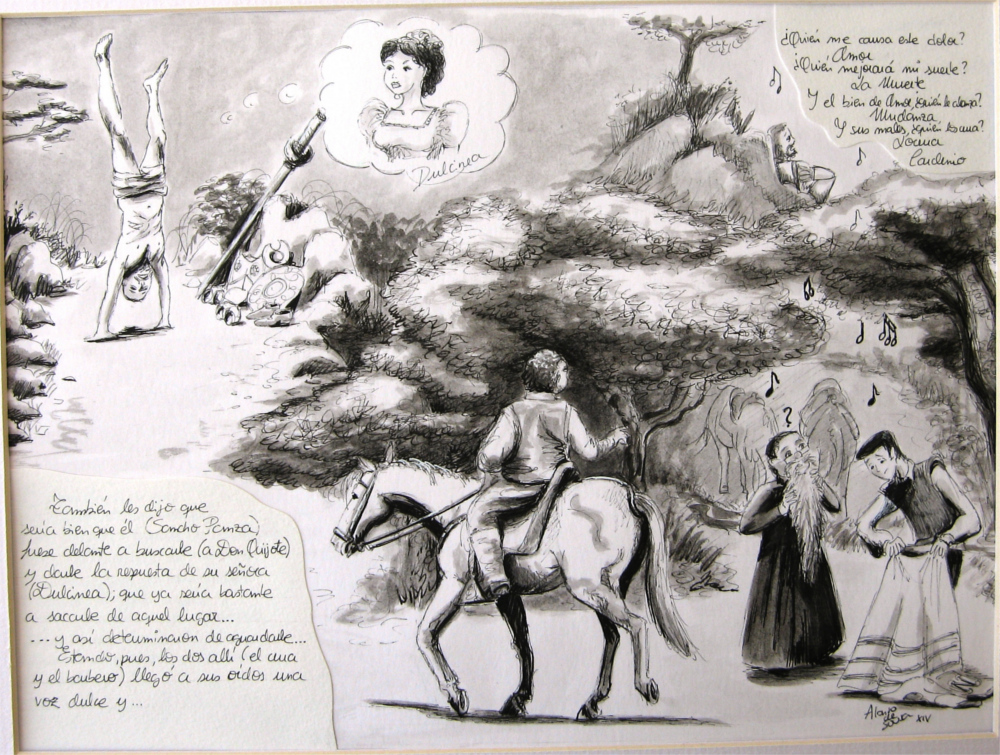 ¿Quién me causa este dolor?
Amor
¿Quién mejorará mi suerte?
La Muerte
Y el bien de Amor, ¿quién le alcanza?
Mudanza
Y sus males, ¿quién los cura?
Locura
Cardenio
Dulcinea
?
También les dijo que
sería bien que él (Sancho Panza)
fuese delante a buscarle (a Don Quijote)
y darle la respuesta de su señora
(Dulcinea); que ya sería bastante
a sacarle de aquel lugar...
... y así determinaron de aguardarle...
Estando, pues, los dos allí (el cura
y el barbero) llegó a sus oídos una
voz dulce y...
XIV